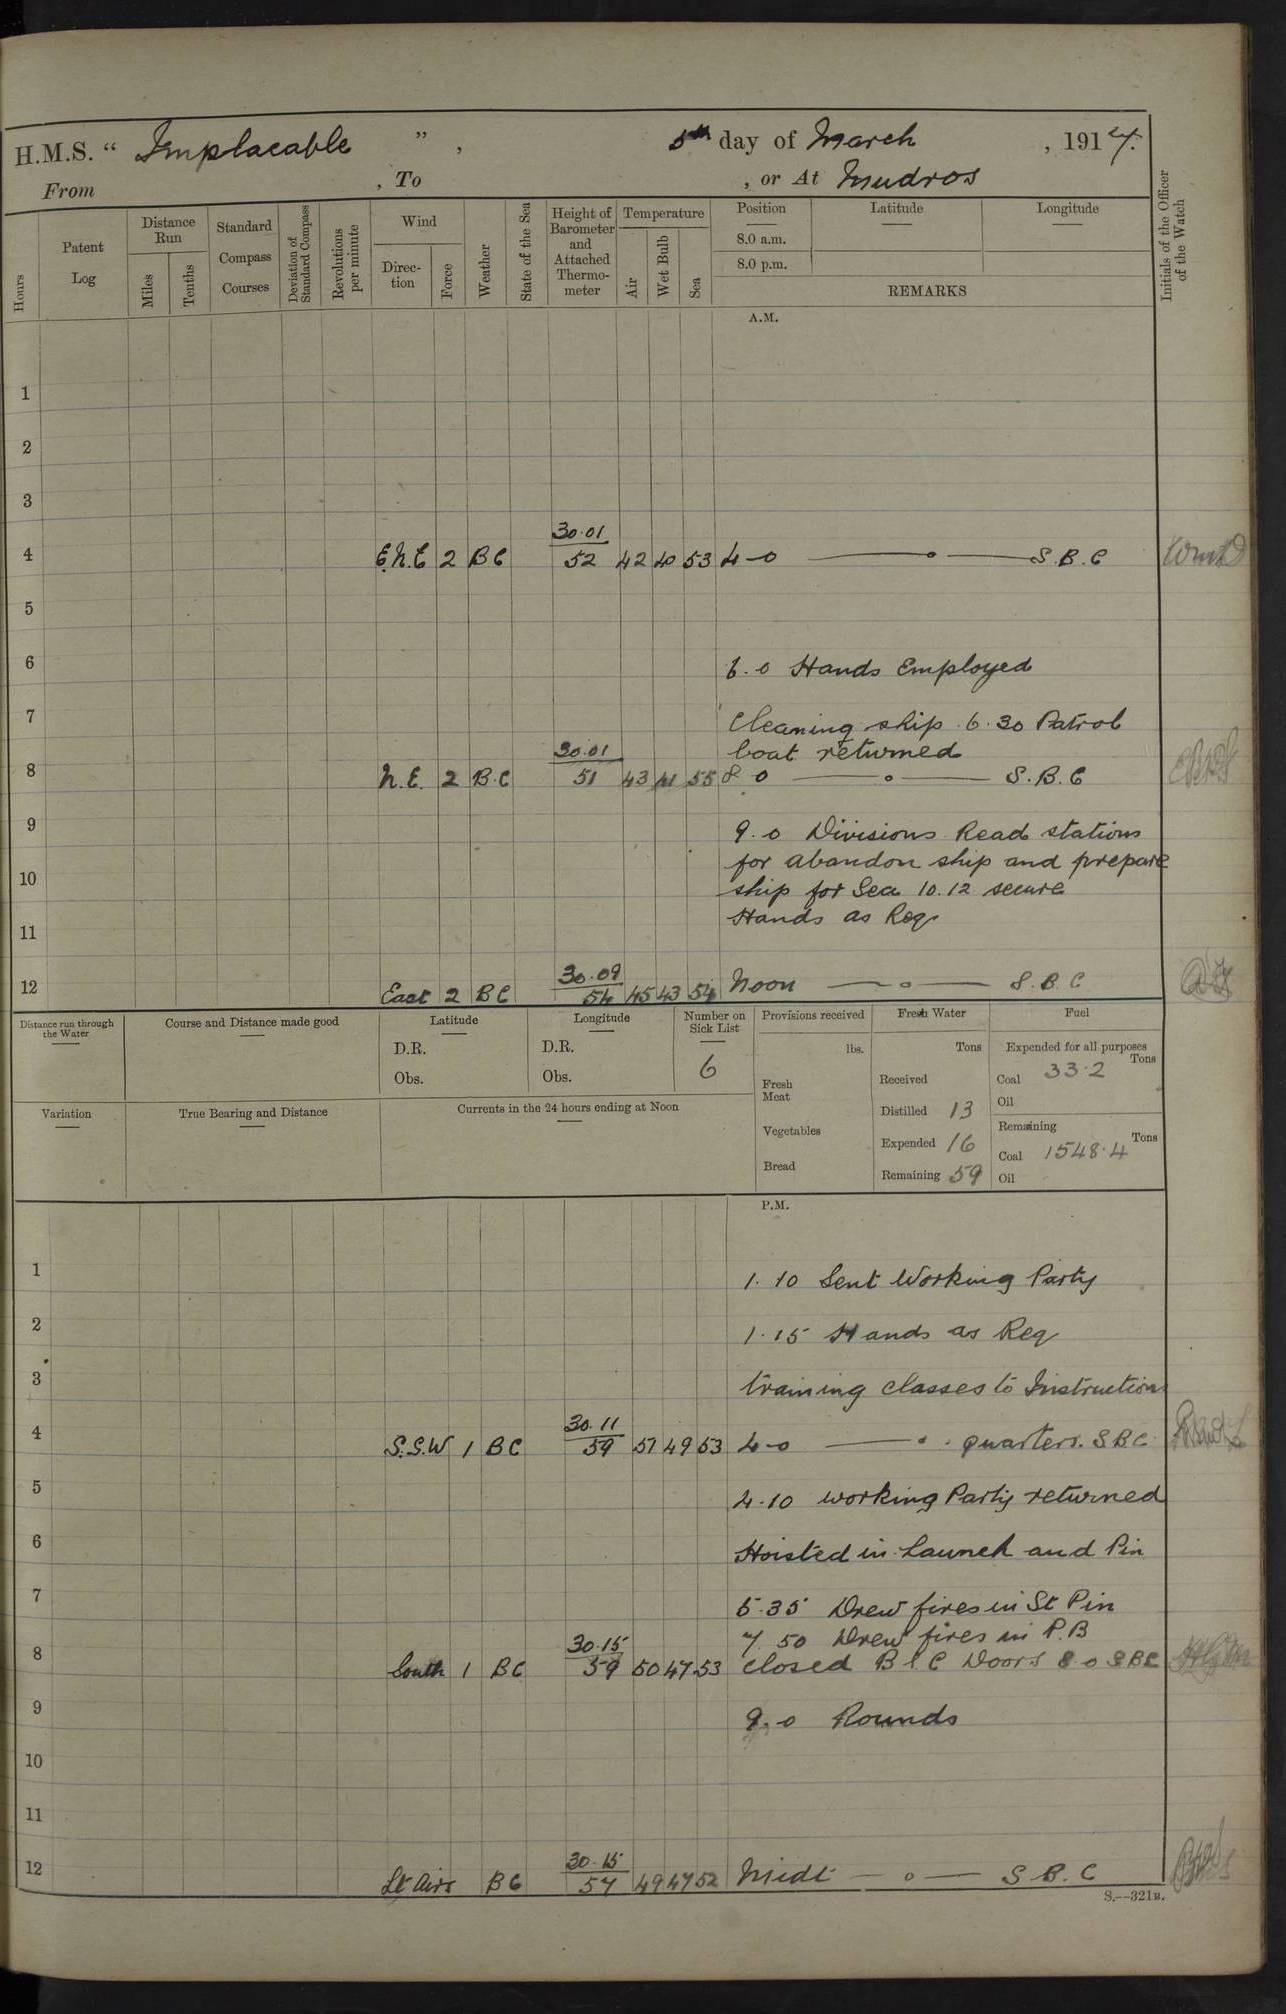 H.M.S. “ Implacable ” , 5th day of March , 1917.
From , To , or At Mudros
Hours Patent Log Distance Run Miles Tenths Standard Compass Courses Deviation of Standard Compass Revolutions per minute Wind Direc-tion Force Weather State of the Sea Height of Barometer and Attached Thermo-meter Temperature Air Wet Bulb Sea Position Latitude Longitude Initials of the Officer of the Watch
8.0 a.m.
8.0 p.m.
REMARKS
A.M.
1
2
3
4 E.N.E 2 BC 30.01 52 42 40 53 4-0 S.B.C
5
6 6.0 Hands Employed
7 Cleaning ship 6.30 Patrol
boat returned
8 N.E. 2 B.C 30.01 51 43 41 55 8.0 S.B.C
9 9.0 Divisions Read stations
for abandon ship and prepare
10 ship for Sea 10.12 secure
Hands as Req
11
12 East 2 BC 30.09 54 45 43 54 Noon S.B.C
Distance run through the Water Course and Distance made good Latitude Longitude Number on Sick List Provisions received Fresh Water Fuel
D.R. D.R. lbs. Tons Expended for all purposes Tons
Obs. Obs. 6 Fresh Meat Received Coal 33.2
Oil
Variation True Bearing and Distance Currents in the 24 hours ending at Noon Distilled 13 Remaining Tons
Vegetables Expended 16 Coal 1548.4
Bread Remaining 59 Oil
P.M.
1 1.10 Sent Working Party
2 1.15 Hands as Req
3 training classes to Instruction
4 S.S.W 1 BC 30.11 59 51 49 53 4-0 quarters. SBC
5 4.10 working Party returned
6 Hoisted in Launch and Pin
7 5.35 Drew fires in St Pin
7.50 Drew fires in P.B
8 South 1 BC 30.15 59 50 47 53 closed B & C Doors 8.0 SBC
9 9.0 Rounds
10
11
12 Lt Airs BC 30.15 57 49 47 52 Midt S.B.C
S.—321B.